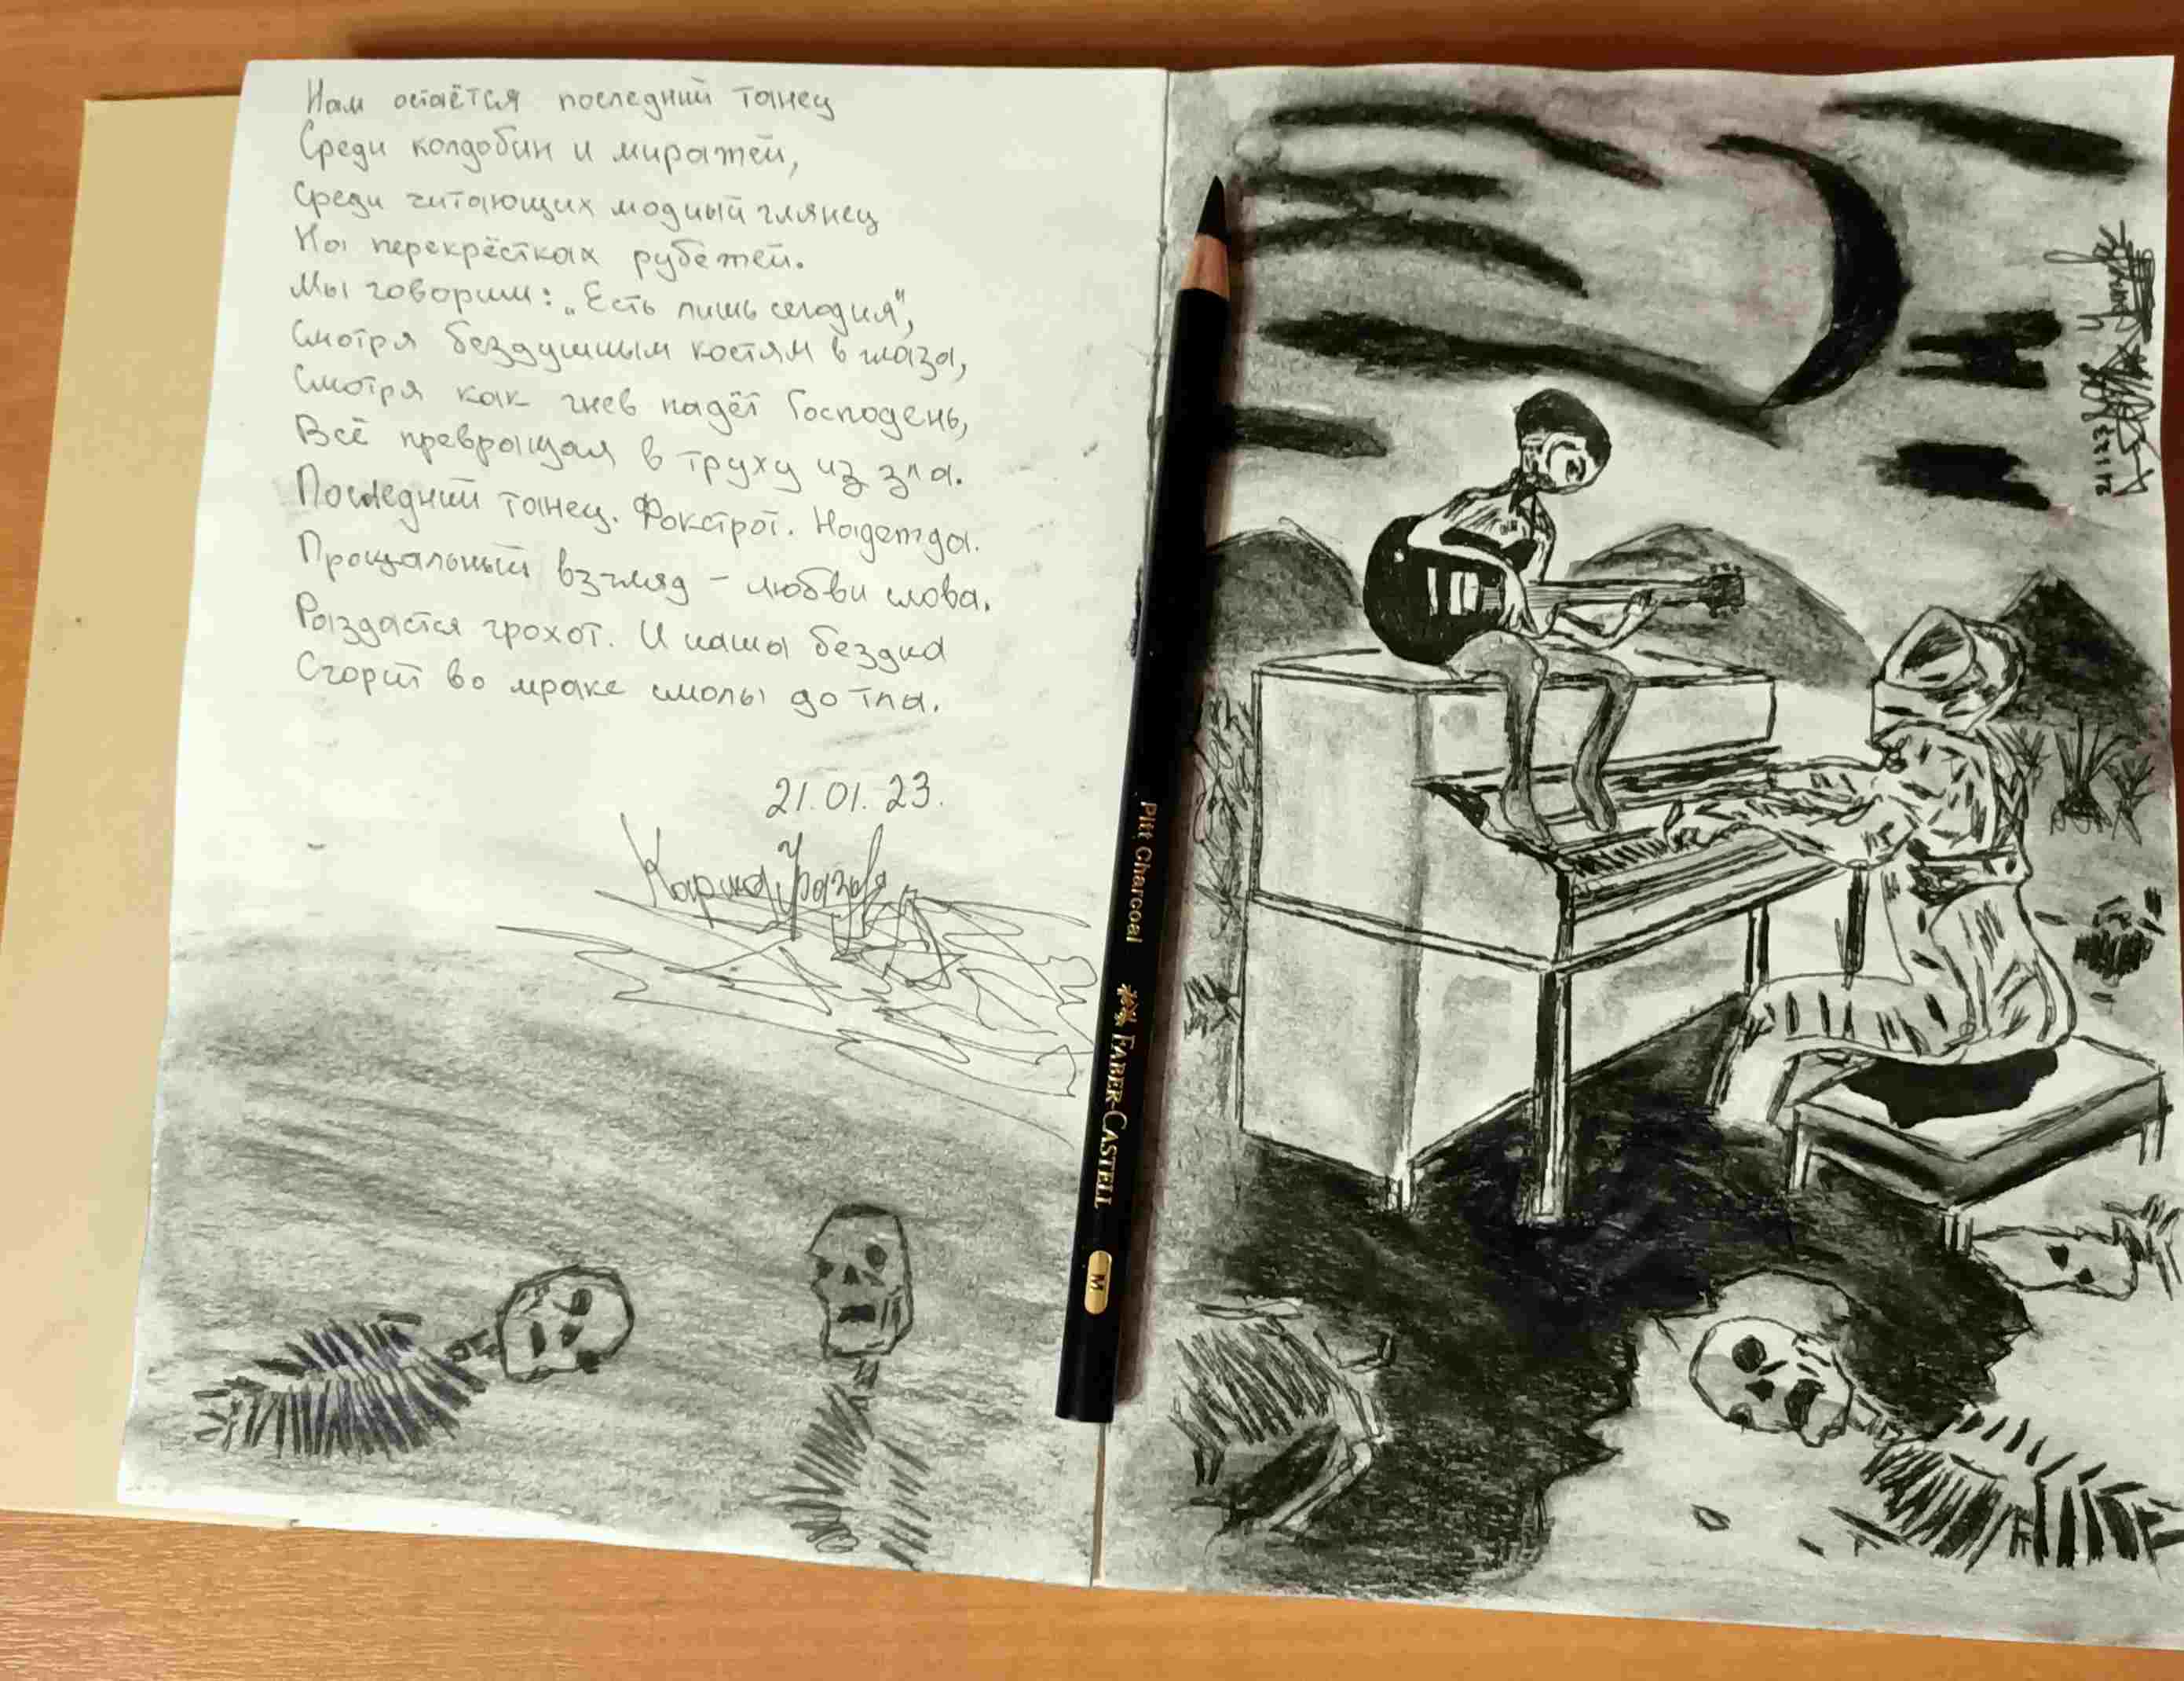 Нам остаётся последний танец
Среди колдобин и миражей,
Среди читающих модный глянец
На перекрёстках рубежей.
Мы говорим: „Есть лишь сегодня",
Смотря бездушным костям в глаза,
Смотря как гнев падёт Господень,
Всё превращая в труху из зла.
Последний танец. Фокстрот. Надежда.
Прощальный взгляд – любви слова.
Раздастся грохот. И наша бездна
Сгорит во мраке смолы до тла.
21.01.23.
Pitt Charcoal FABER-CASTELL M